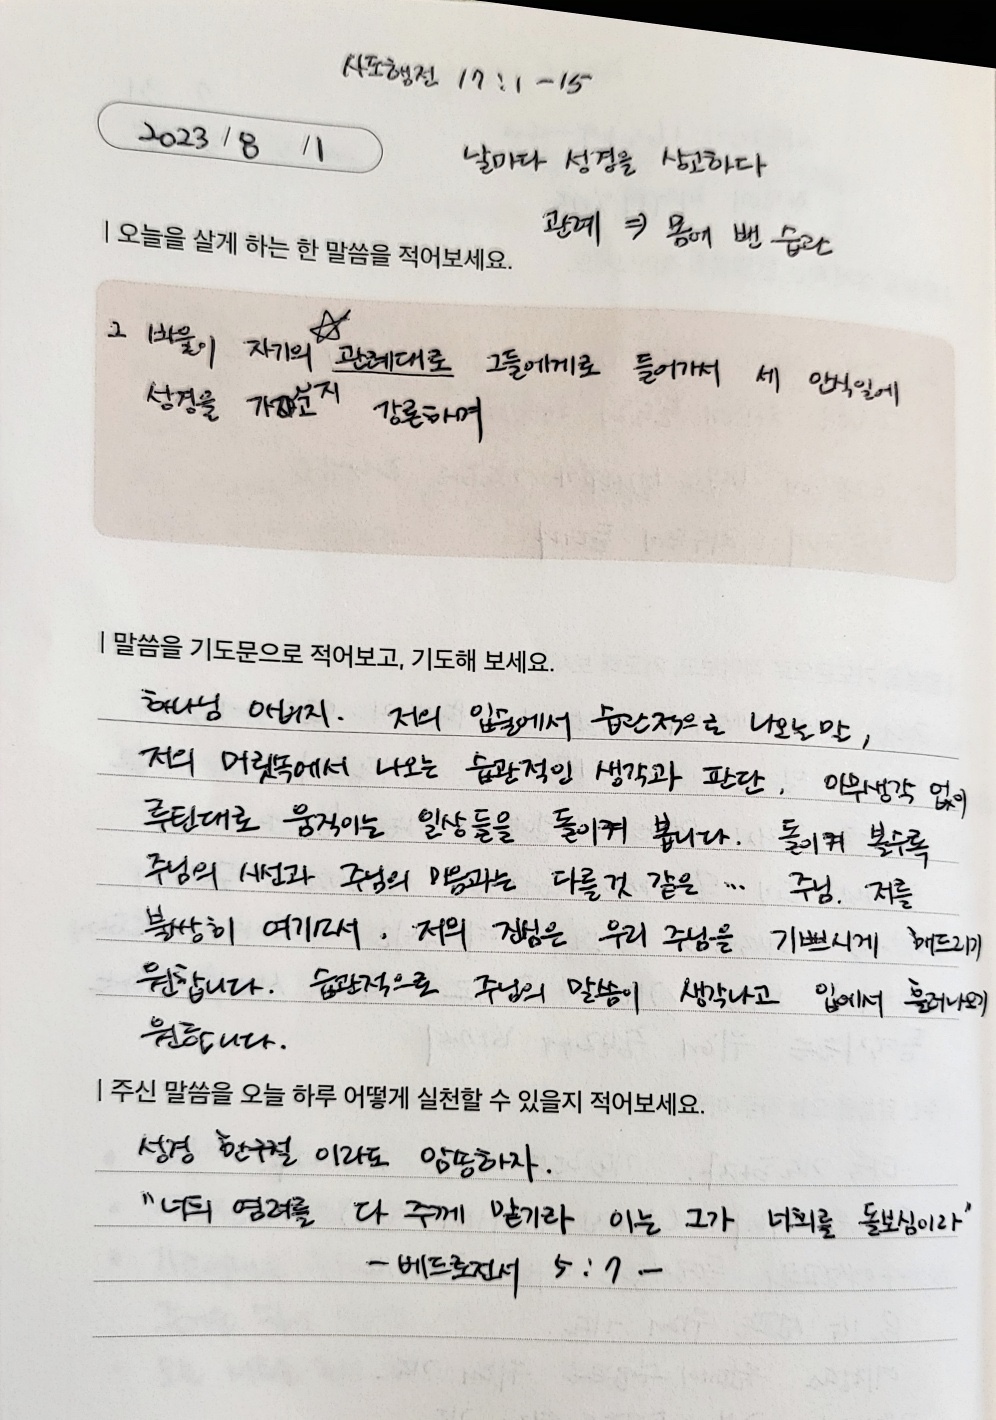 사도행전 17:1-15
2023/8/1
날마다 성경을 상고하다
관례 ⇒ 몸에 밴 습관
| 오늘을 살게 하는 한 말씀을 적어보세요.
2 바울이 자기의 ☆관례대로 그들에게로 들어가서 세 안식일에
성경을 가지고 강론하며
| 말씀을 기도문으로 적어보고, 기도해 보세요.
하나님 아버지. 저의 입술에서 습관적으로 나오는 말,
저의 머릿속에서 나오는 습관적인 생각과 판단, 아무생각 없이
루틴대로 움직이는 일상들을 돌이켜 봅니다. 돌이켜 볼수록
주님의 시선과 주님의 마음과는 다를것 같은 ... 주님. 저를
불쌍히 여기소서. 저의 진심은 우리 주님을 기쁘시게 해드리기
원합니다. 습관적으로 주님의 말씀이 생각나고 입에서 흘러나오기
원합니다.
| 주신 말씀을 오늘 하루 어떻게 실천할 수 있을지 적어보세요.
성경 한구절 이라도 암송하자.
"너희 염려를 다 주께 맡기라 이는 그가 너희를 돌보심이라"
- 베드로전서 5:7 -